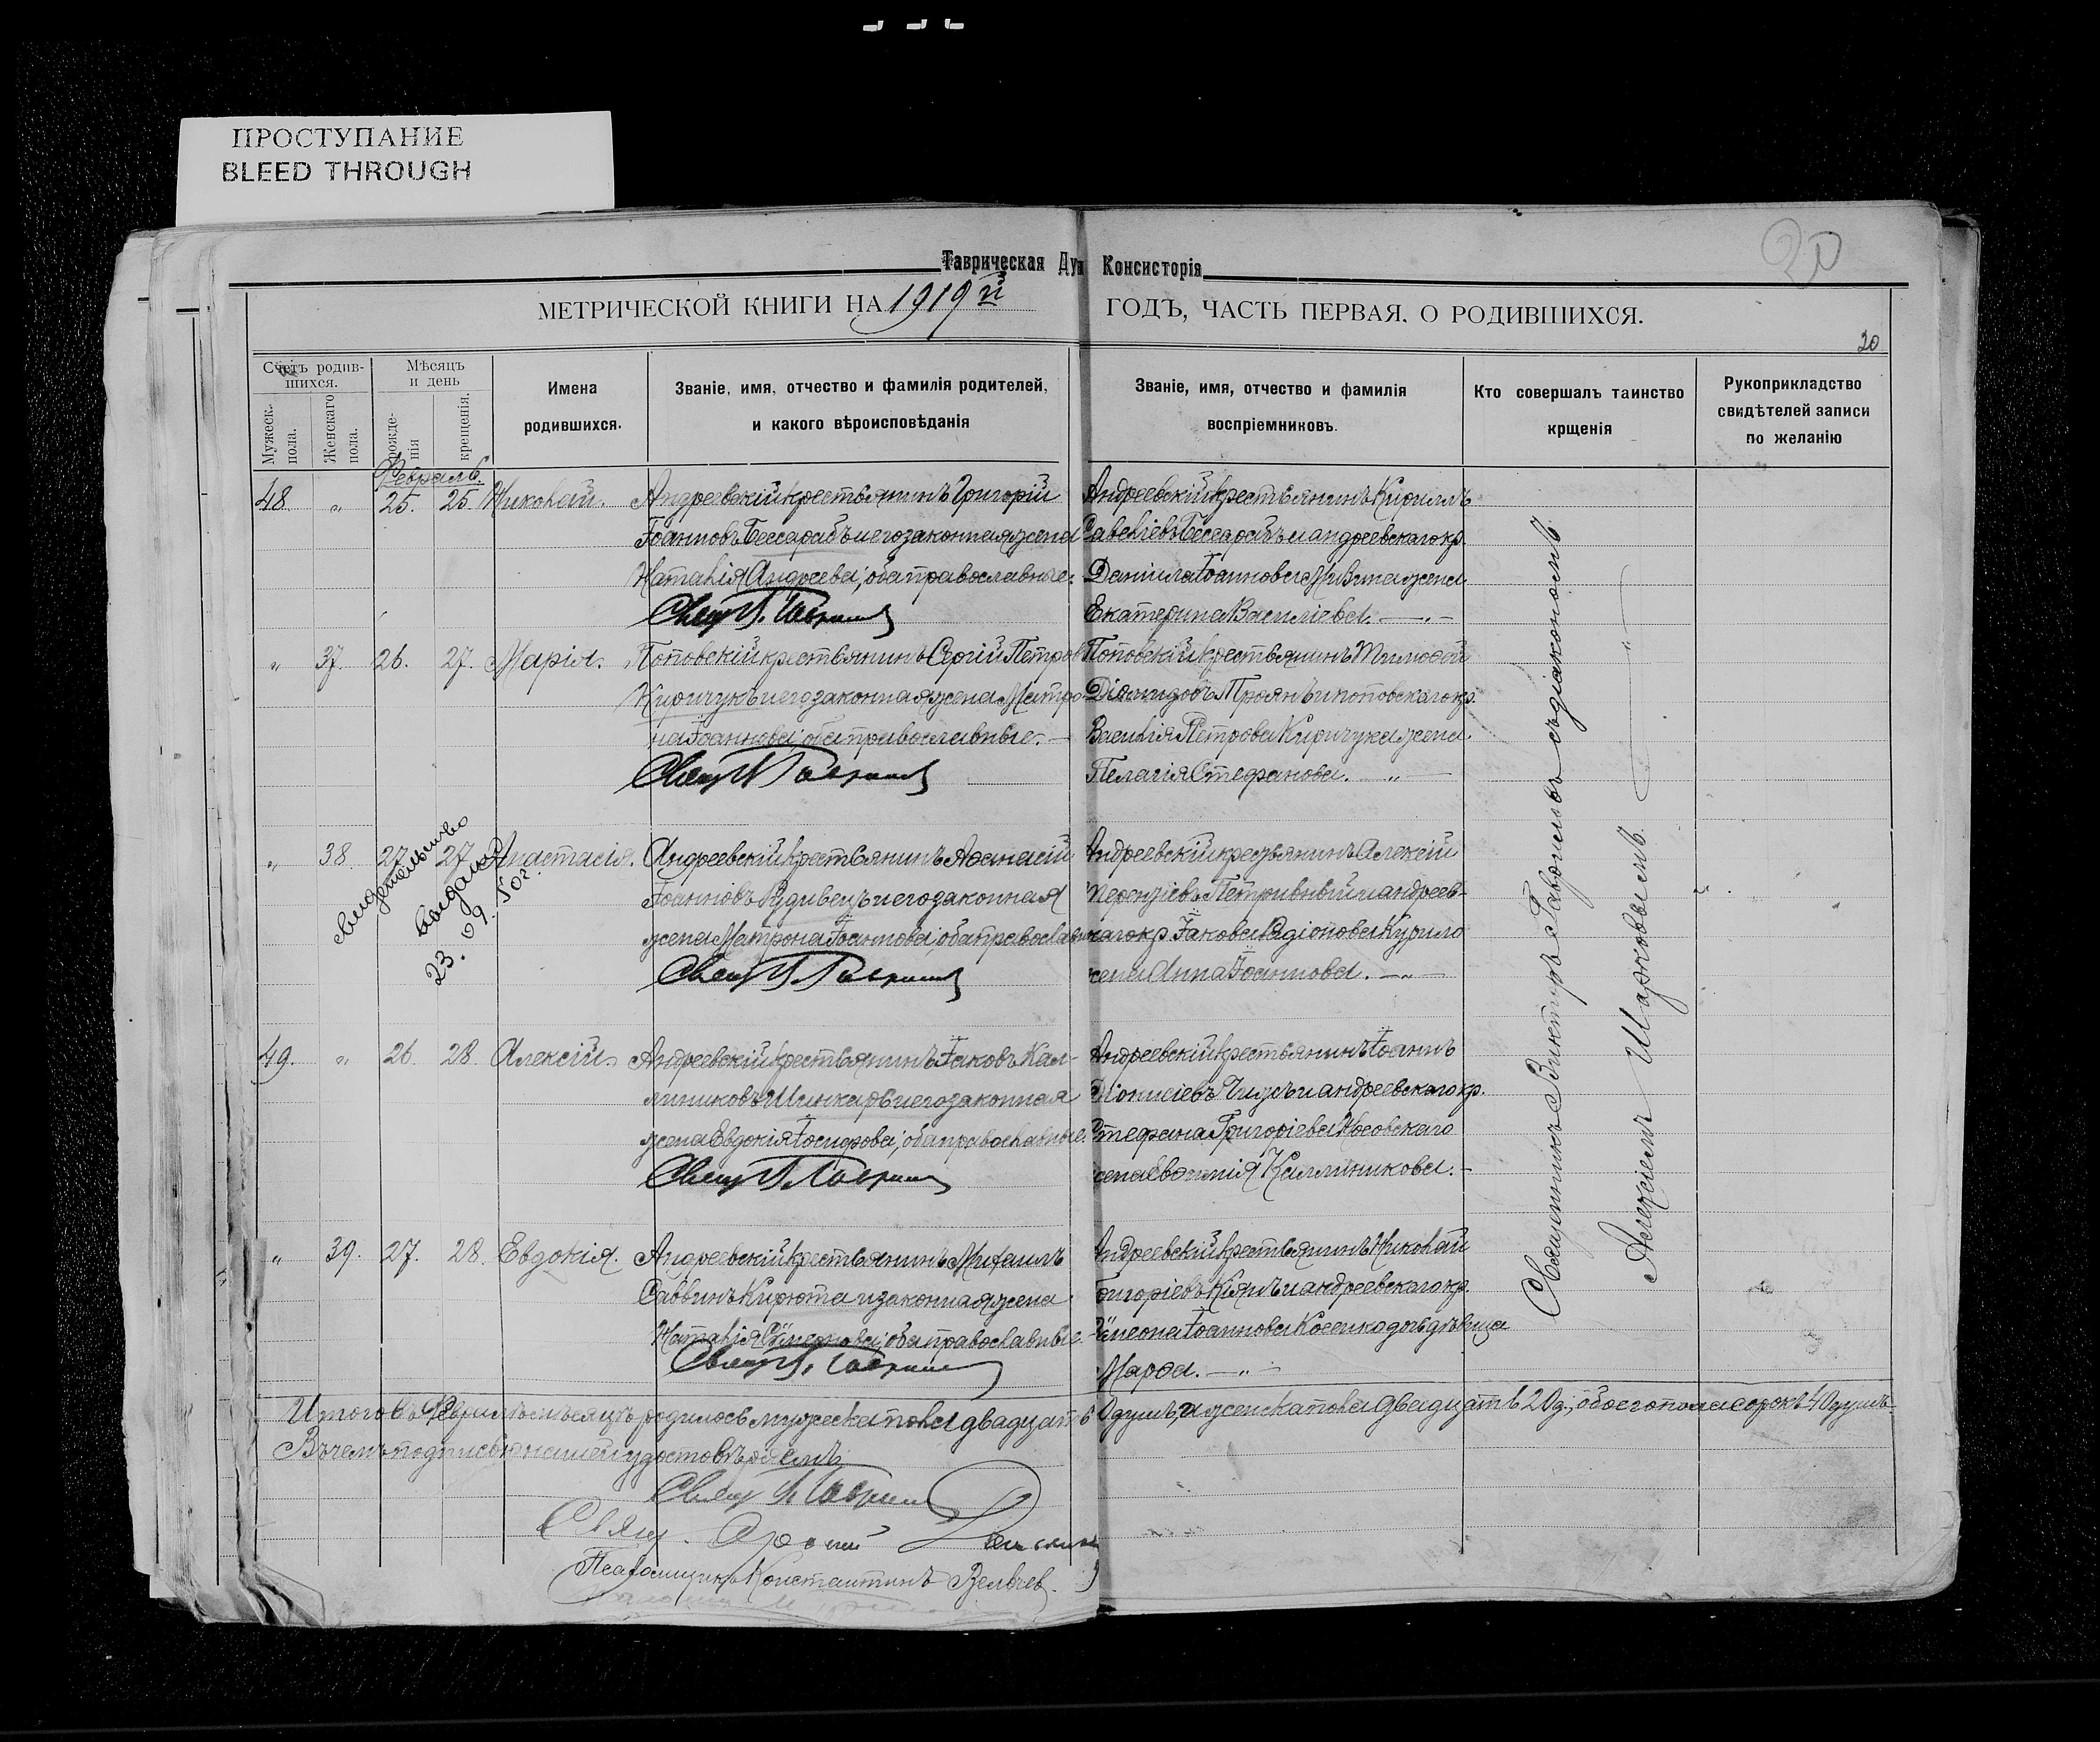 ПРОСТУПАНИЕ
BLEED THROUGH
20
Таврическая Дух Консисторія
МЕТРИЧЕСКОЙ КНИГИ НА 1919й ГОДЪ, ЧАСТЬ ПЕРВАЯ. О РОДИВШИХСЯ.
20
Счетъ родив-
шихся.
Мужеск. пола.
Женскаго пола.
Мѣсяцъ
и день
рожде-
нія
крещенія.
Имена
родившихся.
Званіе, имя, отчество и фамилія родителей,
и какого вѣроисповѣданія
Званіе, имя, отчество и фамилія
воспріемниковъ.
Кто совершалъ таинство
крщенія
Рукоприкладство
свидѣтелей записи
по желанію
Февраль.
48. „ 25. 25. Николай. Андреевскій крестьянинъ Григорій
Іоанновъ Бессарабъ и его законная жена
Наталія Андреева; оба православные.
Свящ В. Гаврилов
Андреевскій крестьянинъ Кириллъ
Савеліевъ Бессарабъ и андреевскаго кр.
Даніила Іоаннова жена
Екатерина Василіева. — „ —
„ 37. 26. 27. Марія. Поповскій крестьянинъ Сергій Петров
Киричукъ и его законная жена Матро
на Іоаннова; оба православные. —
Свящ В Гаврилов
Поповскій крестьянинъ Тимофей
Діомидовъ Проянъ и поповскаго кр.
Василія Петрова Киричука жена
Пелагія Стефанова. „ —
„ 38. 27. 27. Анастасія. Андреевскій крестьянинъ Афанасій
Іоанновъ Рудивецъ и его законная
жена Матрона Іоаннова; оба православн
Свящ В. Гаврилов
свидетельство
выдано
23. 09. 50г.
Андреевскій крестьянинъ Алексій
Терентіевъ Петривный и андреев-
скаго кр. Іакова Родіонова Курило
жена Анна Іоаннова. — „ —
49. „ 26. 28. Алексій. Андреевскій крестьянинъ Іаковъ Кал-
линиковъ Шинкарь и его законная
жена Евдокія Іосифова; оба православные.
Свящ В. Гаврилов
Андреевскій крестьянинъ Іоаннъ
Діонисіевъ Чижъ и андреевскаго кр.
Стефана Григоріева Носовскаго
жена Каллиникова. —
„ 39. 27. 28. Евдокія. Андреевскій крестьянинъ Михаилъ
Саввинъ Кирюта и законная жена
Наталія Сѵмеонова; оба православные.
Свящ В. Гаврилов
Андреевскій крестьянинъ Николай
Григоріевъ Кіянъ и андреевскаго кр.
Сѵмеона Іоаннова Косенко дочь дѣвица
Марфа. — „ —
Священникъ Викторъ Гавриловъ съ діакономъ
Алексіемъ Шарковымъ. — „ —
Итого въ Февралѣ мѣсяцѣ родилось мужеска пола двадцать 20 душъ, а женска пола двадцать 20 д., обоего пола сорокъ 40 душъ.
Въ чемъ подписью нашей удостовѣряемъ
Свящ В Гаврилов
Свящ.
Псаломщикъ Константинъ